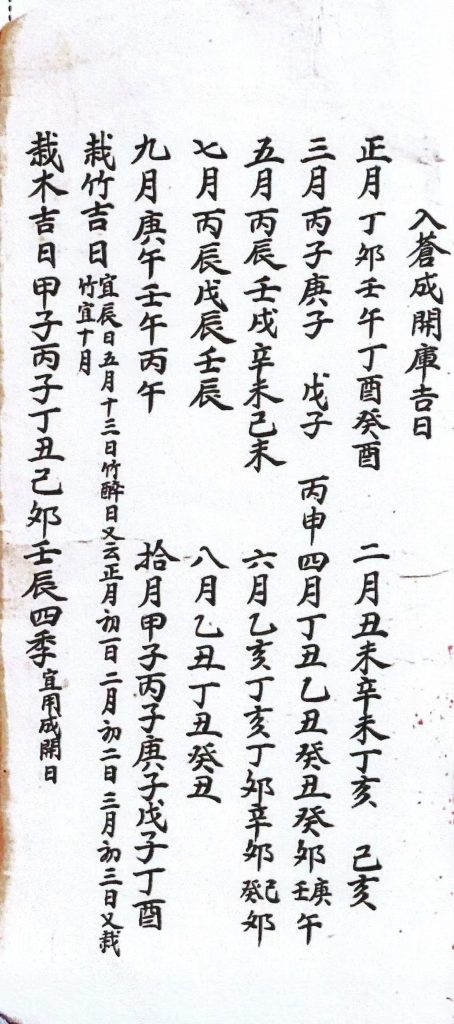 入蒼成開庫吉日
正月丁夘壬午丁酉癸酉 二月丑未辛未丁亥 己亥
三月丙子庚子 戊子 丙申四月丁丑乙丑癸丑癸夘庚壬午
五月丙辰壬戌辛未己未 六月乙亥丁亥丁夘辛夘己癸夘
七月丙辰戊辰壬辰 八月乙丑丁丑癸丑
九月庚午壬午丙午 拾月甲子丙子庚子戊子丁酉
栽竹吉日宜辰日五月十三日竹醉日又云正月初一日二月初二日三月初三日又栽竹宜十月
栽木吉日甲子丙子丁丑己夘壬辰四季宜用成開日